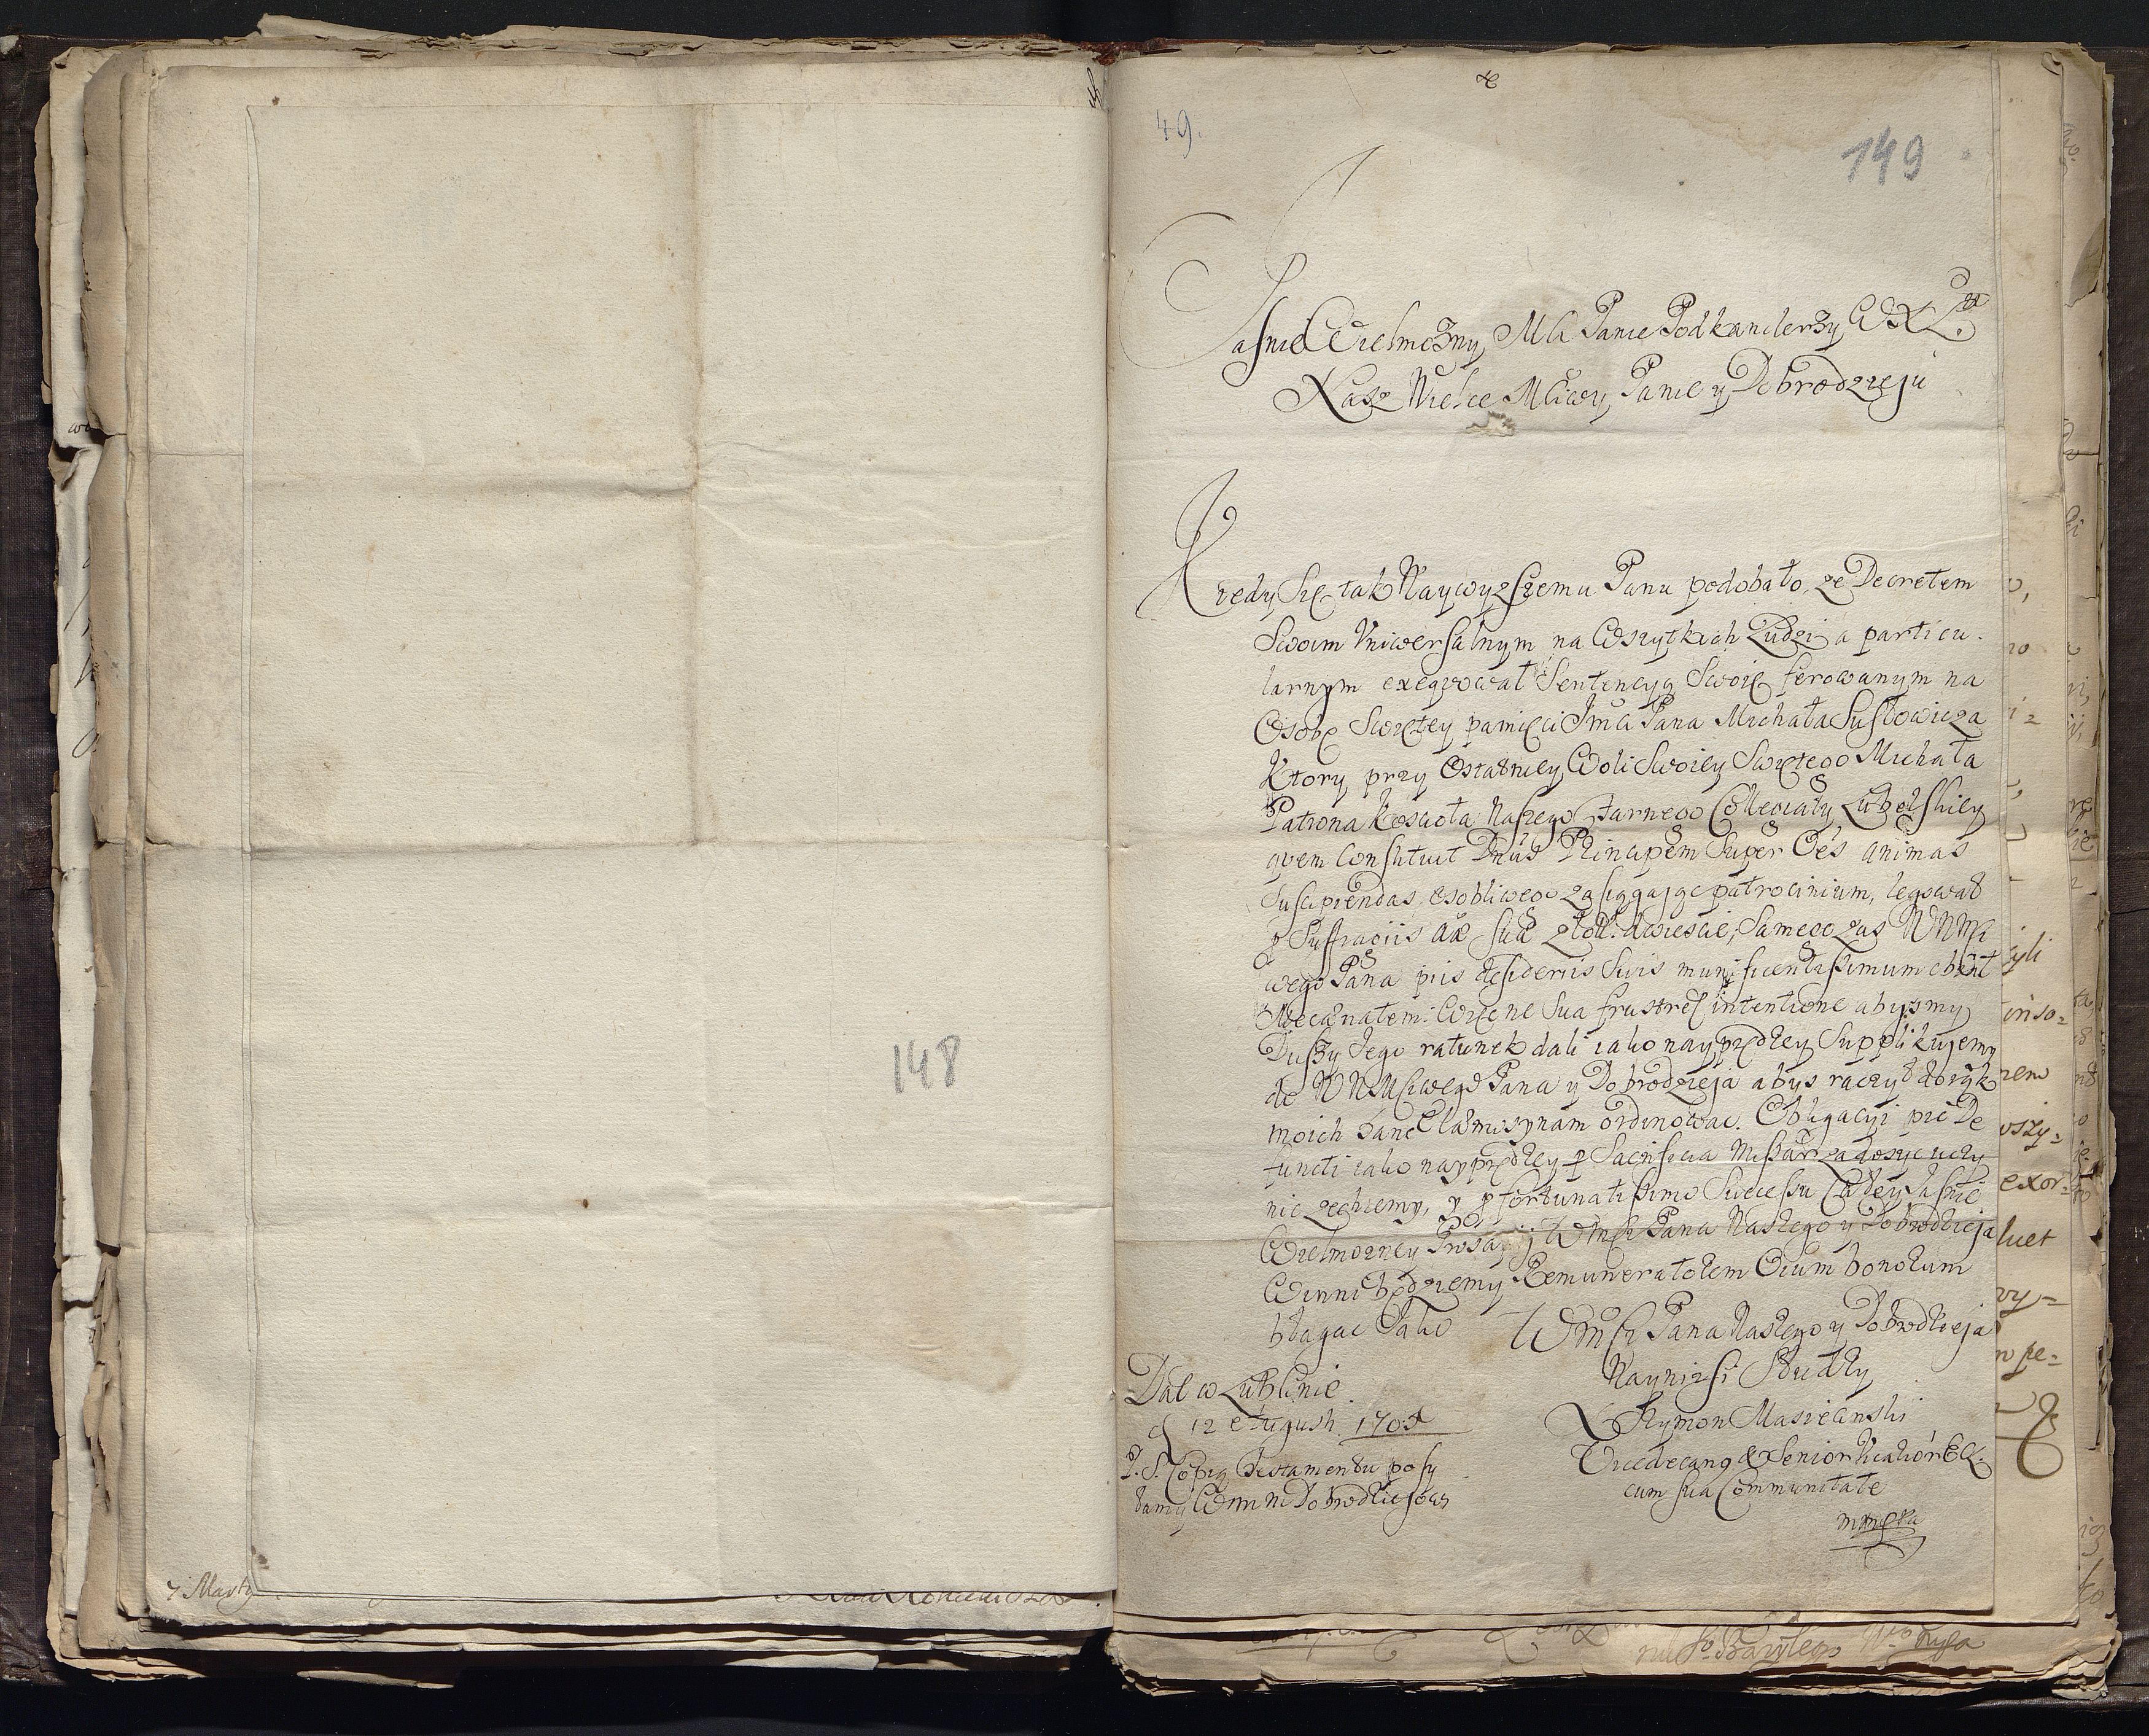 148
49.
149
Jasnie Wielmozny Mci Panie Podkanclerzy WXL
Nasz Wielce Mciwy Panie y Dobrodzieju
Kiedy Się tak Naywyzszemu Panu podobało, ze Decretem
Swoim Vniwersalnym na Wszytkich Ludzi a particu-
larnym exeqvował Sentencyą Swoię ferowanym na
Osobę Swiętey pamięci Jmci Pana Michała Susłowicza
Ktory przy Ostatniey Woli Swoiey Swiętego Michała
Patrona Koscioła Naszego Farnego Collegiaty Lubelskiey
qvem Constituit Dnus Principem Super Oes animas
Suscipiendas, osobliwego zasiągaiąc patrocinium, legował
p Suffragiis aæ suæ złot. dwiescie, Samego zas WNMci
wego Pana piis desideriis Suis munificentissimum
Mecænatem. Więc ne Sua frustret intentione abysmy
Duszy Jego ratunek dali iako nayprędzey Supplikujemy
do WNMciwego Pana y Dobrodzieja abys raczył do rąk
moich dane Elæmosynam ordinowac. Obligacyi pie De
functi iako nayprędzey p Sacrificia Missar zadosyc uczy
nic zechcemy, y p fortunatissimo Successu Całey Jasnie
Wielmozney WMci Pana Naszego y Dobrodzieja
Winni będziemy Remuneratorem Oium bonorum
błagac Jako WMci Pana Naszego y Dobrodzieja
Nayniżsi Słudzy
Szymon
Vicedecang & Senior
cum sua Communitate
mmppa
Dat w Lublinie
d 12 Augusti
P. S. Copią Testamentu posy
łamy Dobrodziejowi